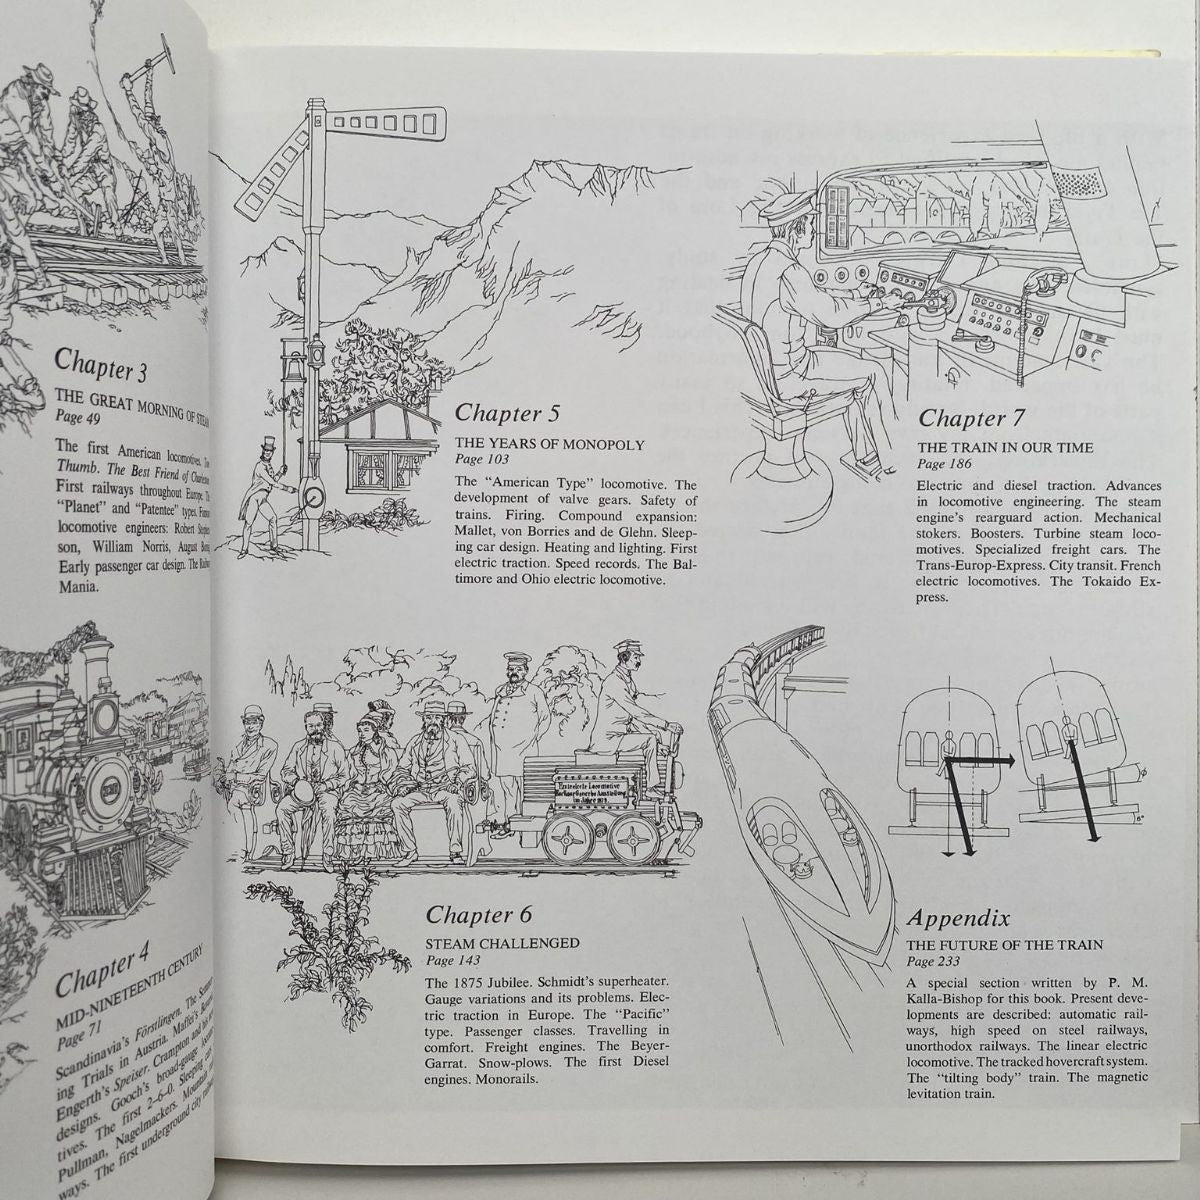 Chapter 3
THE GREAT MORNING OF STEAM
Page 49
The first American locomotives.
Thumb. The Best Friend of Charleston
First railways throughout Europe. The
"Planet" and "Patentee" types.
locomotive engineers: Robert
son, William Norris, August
Early passenger car design. The Railway
Mania.
Chapter 4
MID-NINETEENTH CENTURY
Page 71
Scandinavia's Förstlingen. The
ing Trials in Austria. Maffei's
Engerth's Speiser. Crampton and his
designs. Gooch's broad-gauge
tives. The first 2–6–0. Sleeping
Pullman, Nagelmackers.
ways. The first underground city
Chapter 5
THE YEARS OF MONOPOLY
Page 103
The "American Type" locomotive. The
development of valve gears. Safety of
trains. Firing. Compound expansion:
Mallet, von Borries and de Glehn. Sleep-
ing car design. Heating and lighting. First
electric traction. Speed records. The Bal-
timore and Ohio electric locomotive.
Chapter 7
THE TRAIN IN OUR TIME
Page 186
Electric and diesel traction. Advances
in locomotive engineering. The steam
engine's rearguard action. Mechanical
stokers. Boosters. Turbine steam loco-
motives. Specialized freight cars. The
Trans-Europ-Express. City transit. French
electric locomotives. The Tokaido Ex-
press.
Erste elektr. Locomotive
Berliner Gewerbe Ausstellung
im Jahre 1879
Chapter 6
STEAM CHALLENGED
Page 143
The 1875 Jubilee. Schmidt's superheater.
Gauge variations and its problems. Elec-
tric traction in Europe. The "Pacific"
type. Passenger classes. Travelling in
comfort. Freight engines. The Beyer-
Garrat. Snow-plows. The first Diesel
engines. Monorails.
6°
Appendix
THE FUTURE OF THE TRAIN
Page 233
A special section written by P. M.
Kalla-Bishop for this book. Present deve-
lopments are described: automatic rail-
ways, high speed on steel railways,
unorthodox railways. The linear electric
locomotive. The tracked hovercraft system.
The "tilting body" train. The magnetic
levitation train.